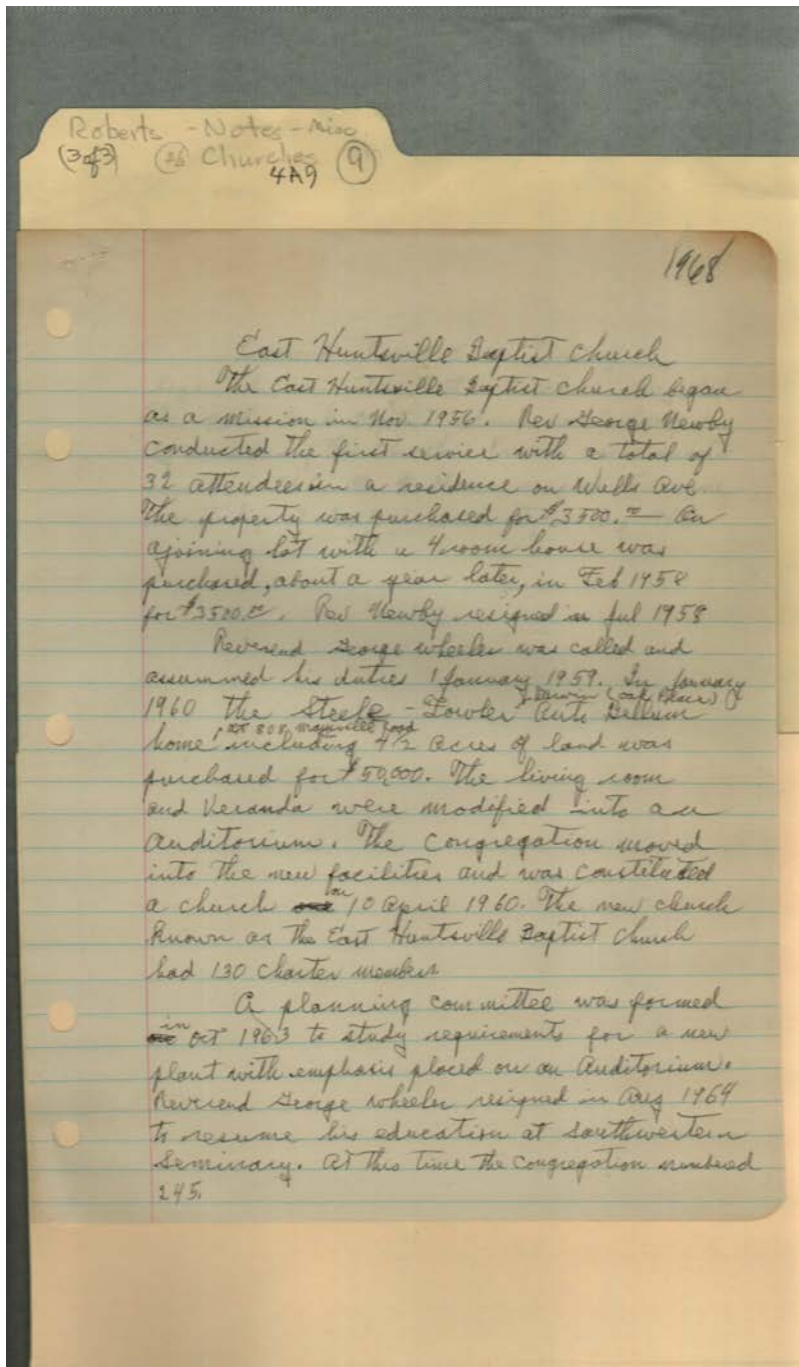 Roberts - Notes - Misc
(3 of 3) Churches 9
4A9
1968
East Huntsville Baptist Church
The East Huntsville Baptist Church began
as a mission in Nov. 1956. Rev George Newby
conducted the first service with a total of
32 attendees in a residence on Wells Ave.
The property was purchased for $3500.00 An
ajoining lot with a 4 room house was
purchased, about a year later, in Feb 1958
for $3500.00. Rev Newby resigned in Jul 1958
Reverend George Wheeler was called and
assummed his duties 1 January 1959. In January
(Oak Place)
1960 the Steele - Fowler Anti Bellum
at 808 Maysville Road
home, including 4 1/2 acres of land was
purchased for $50,000. The living room
and Veranda were modified into an
Auditorium. The Congregation moved
into the new facilities and was constituted
a church on 10 April 1960. The new church
known as the East Huntsville Baptist Church
had 130 charter members
A planning committee was formed
in Oct 1963 to study requirements for a new
plant with emphasis placed on an Auditorium.
Reverend George Wheeler resigned in Aug 1964
to resume his education at Southwestern
Seminary. At this time the congregation numbered
245.